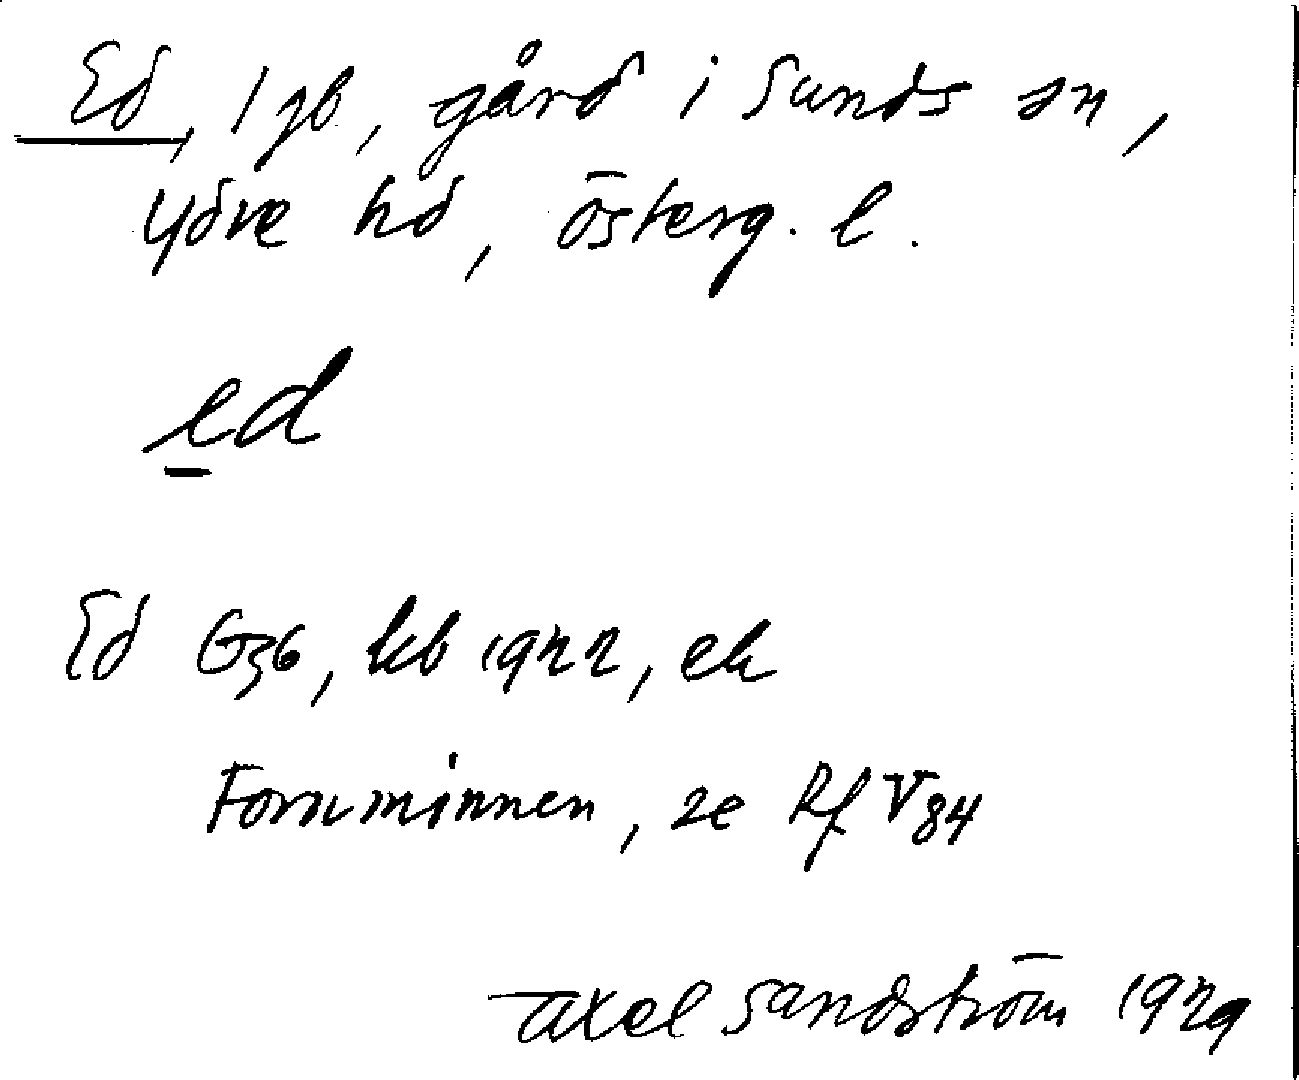 Ed, 1 gb, gård i Sunds sn,
Ydre hd, Österg. l.
ed
Ed G36, kb 1922, ek
Fornminnen, se Rf V84
Axel Sandström 1929